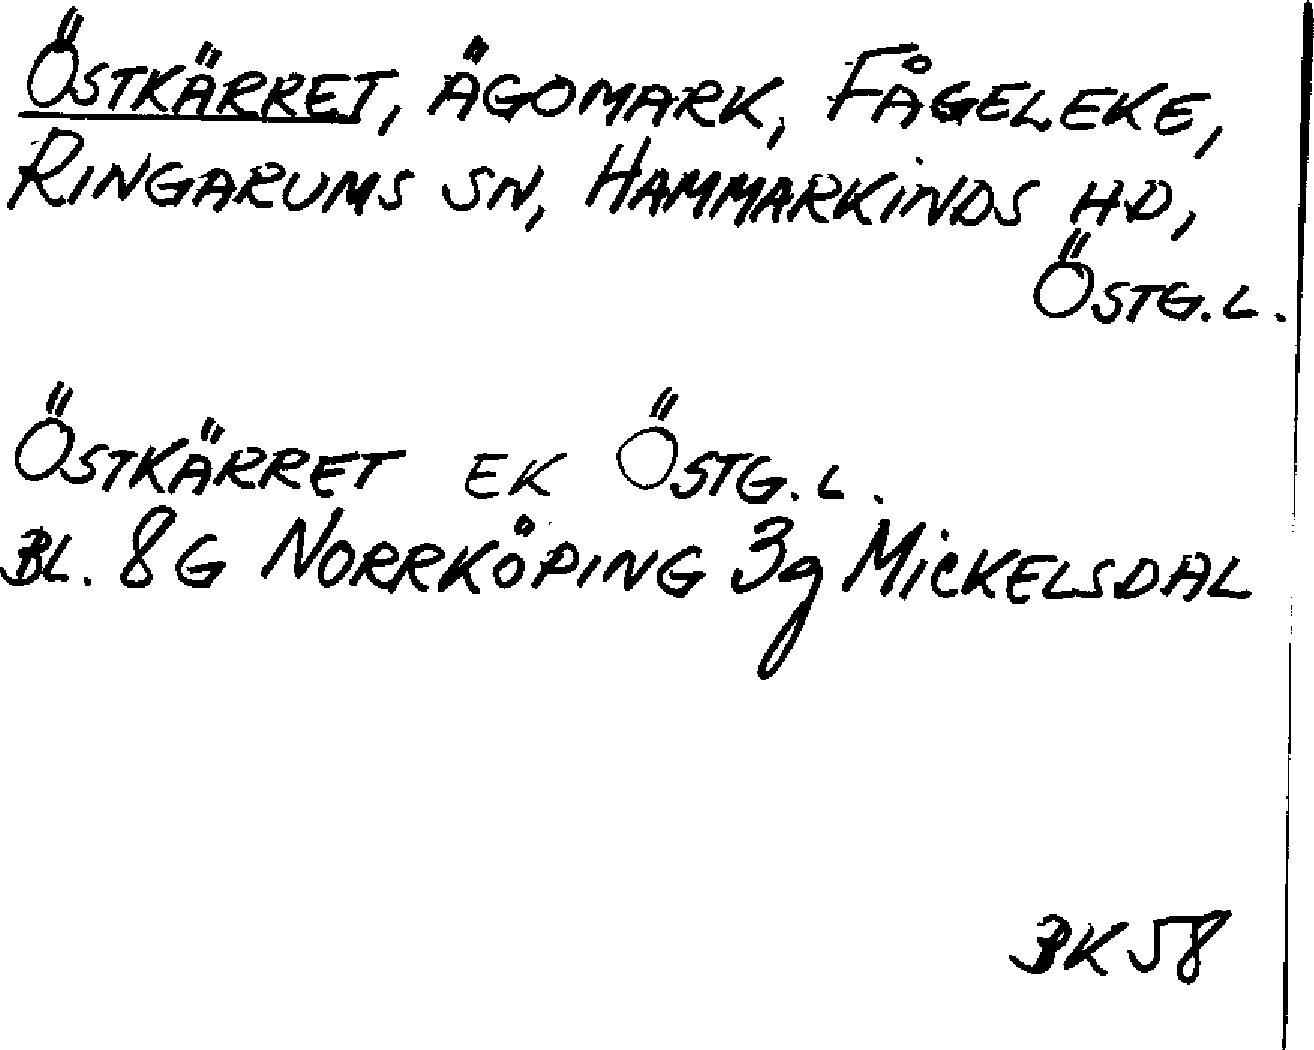 ÖSTKÄRRET, ÄGOMARK, FÅGELEKE,
RINGARUMS SN, HAMMARKINDS HD,
ÖSTG.L.
ÖSTKÄRRET EK ÖSTG.L.
BL. 8G NORRKÖPING 3g MICKELSDAL
BK 58